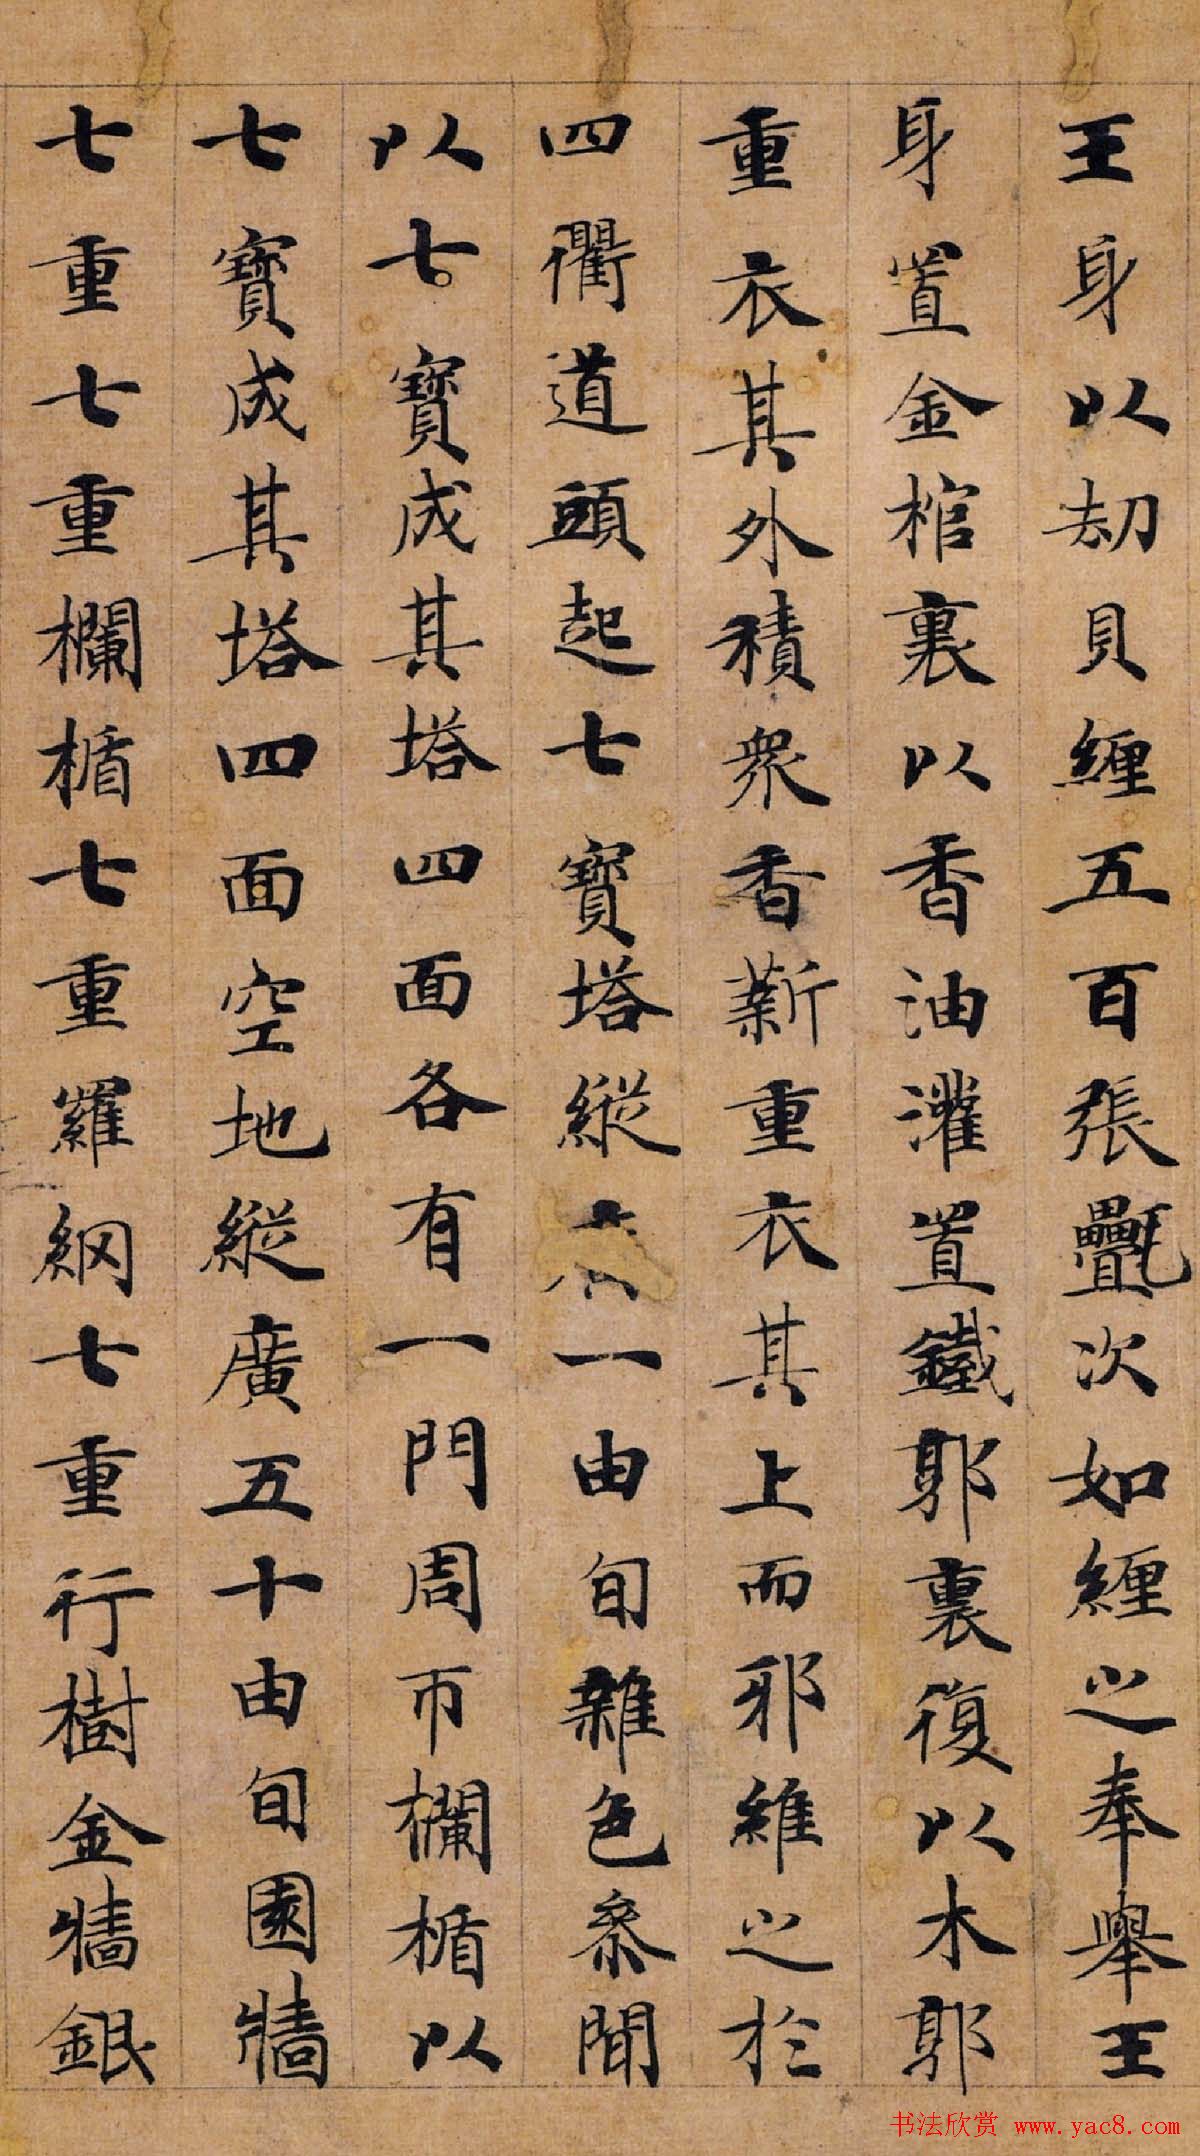 王身以劫貝纏五百張㲲次如纏之奉舉王
身置金棺裏以香油灌置鐵郭裏復以木郭
重衣其外積衆香薪重衣其上而耶維之於
四衢道頭起七寶塔縱一由旬雜色參間
以七寶成其塔四面各有一門周帀欄楯以
七寶成其塔四面空地縱廣五十由旬園牆
七重七重欄楯七重羅網七重行樹金牆銀
书法欣赏 www.yac8.com